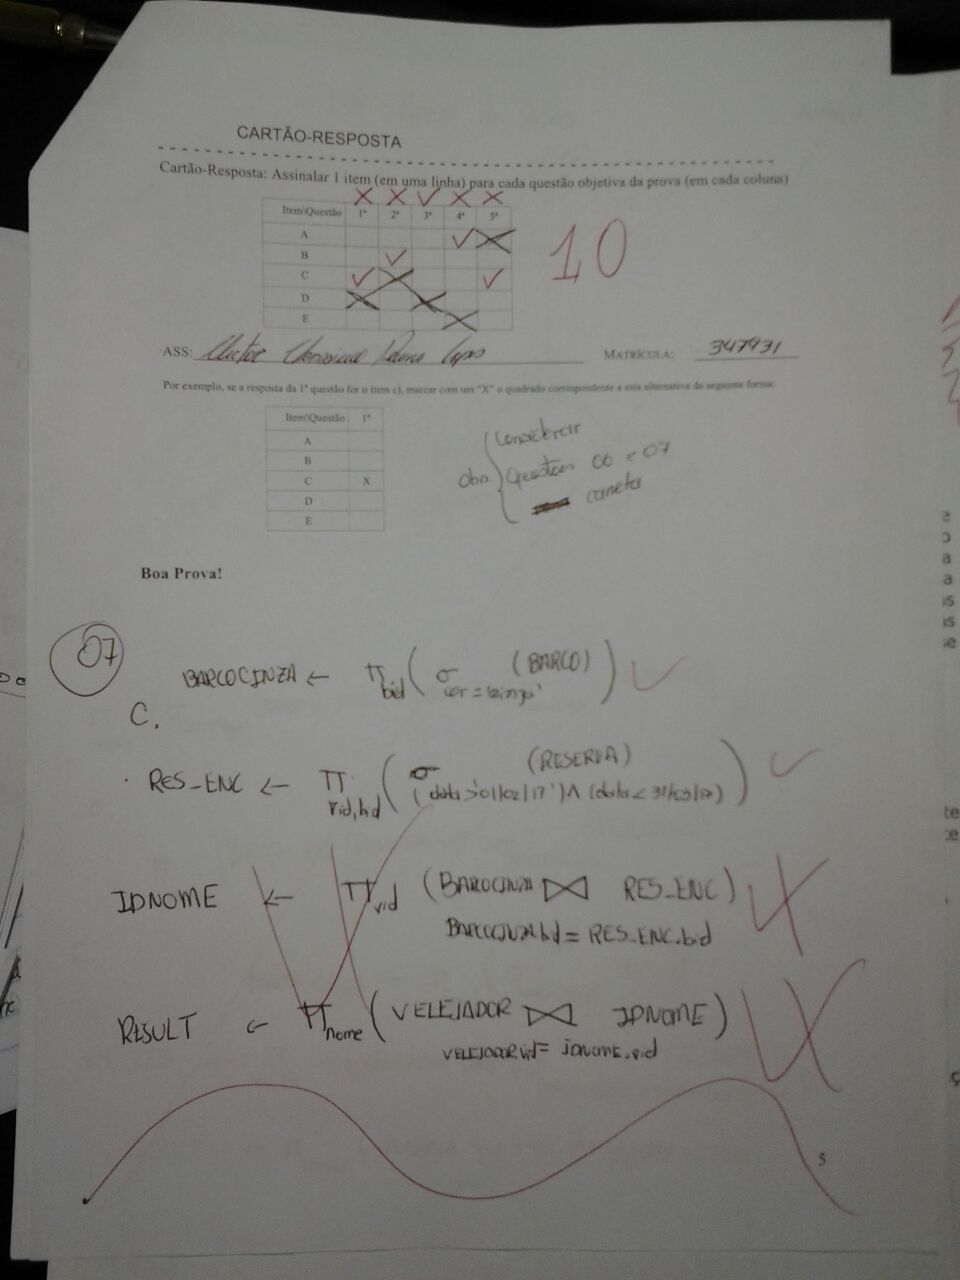 CARTÃO-RESPOSTA
Cartão-Resposta: Assinalar 1 item (em uma linha) para cada questão objetiva da prova (em cada coluna)
Item\Questão 1ª 2ª 3ª 4ª 5ª
A
B
C
D
E
10
ASS: MATRÍCULA: 347931
Por exemplo, se a resposta da 1ª questão for o item c), marcar com um "X" o quadrado correspondente a esta alternativa da seguinte forma:
Item\Questão 1ª
A
B
C X
D
E
Considerar
Obs. Questões 06 e 07
caneta
Boa Prova!
07
BARCOCINZA ← π bid (σ cor='cinza' (BARCO))
C.
RES_ENC ← π vid,bid (σ (data>'01/02/17') ∧ (data< (RESERVA))
IDNOME ← π vid (BARCOCINZA ⋈ RES_ENC)
BARCOCINZA.bid = RES_ENC.bid
RESULT ← π nome (VELEJADOR ⋈ IDNOME)
VELEJADOR.vid = IDNOME.vid
5